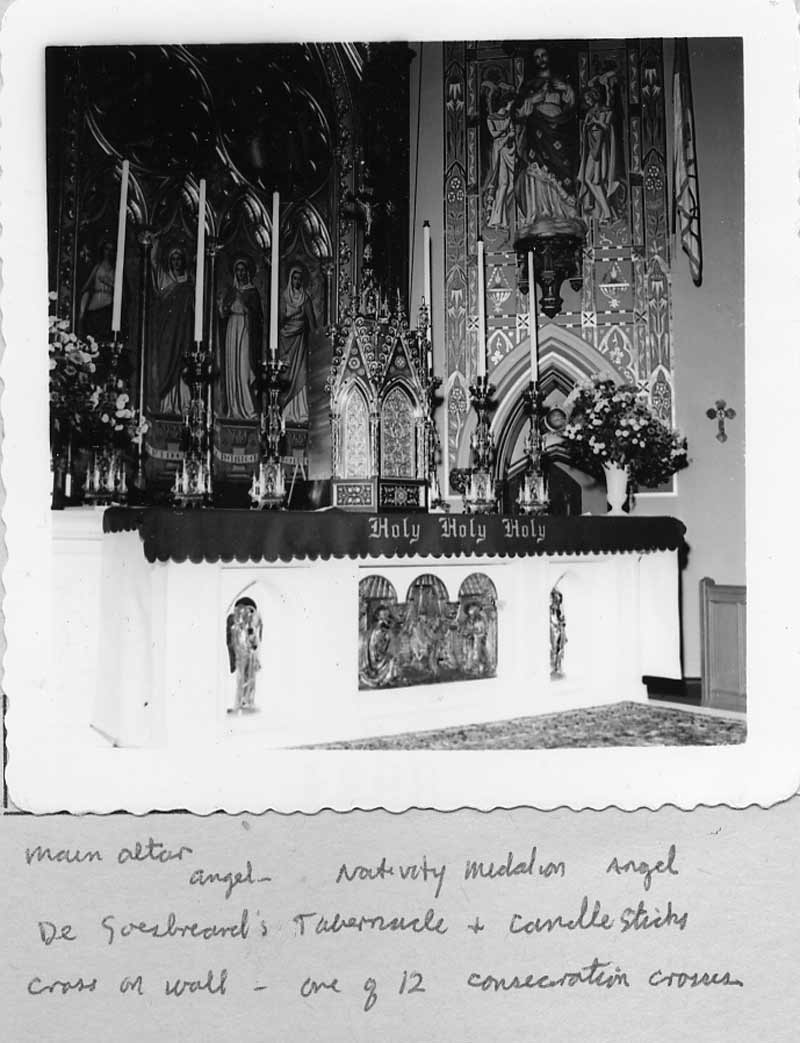 Holy Holy Holy
Main altar
angel - Nativity Medalion Angel
De Goesbreard's Tabernacle + Candle Sticks
Cross on wall - one of 12 consecration crosses